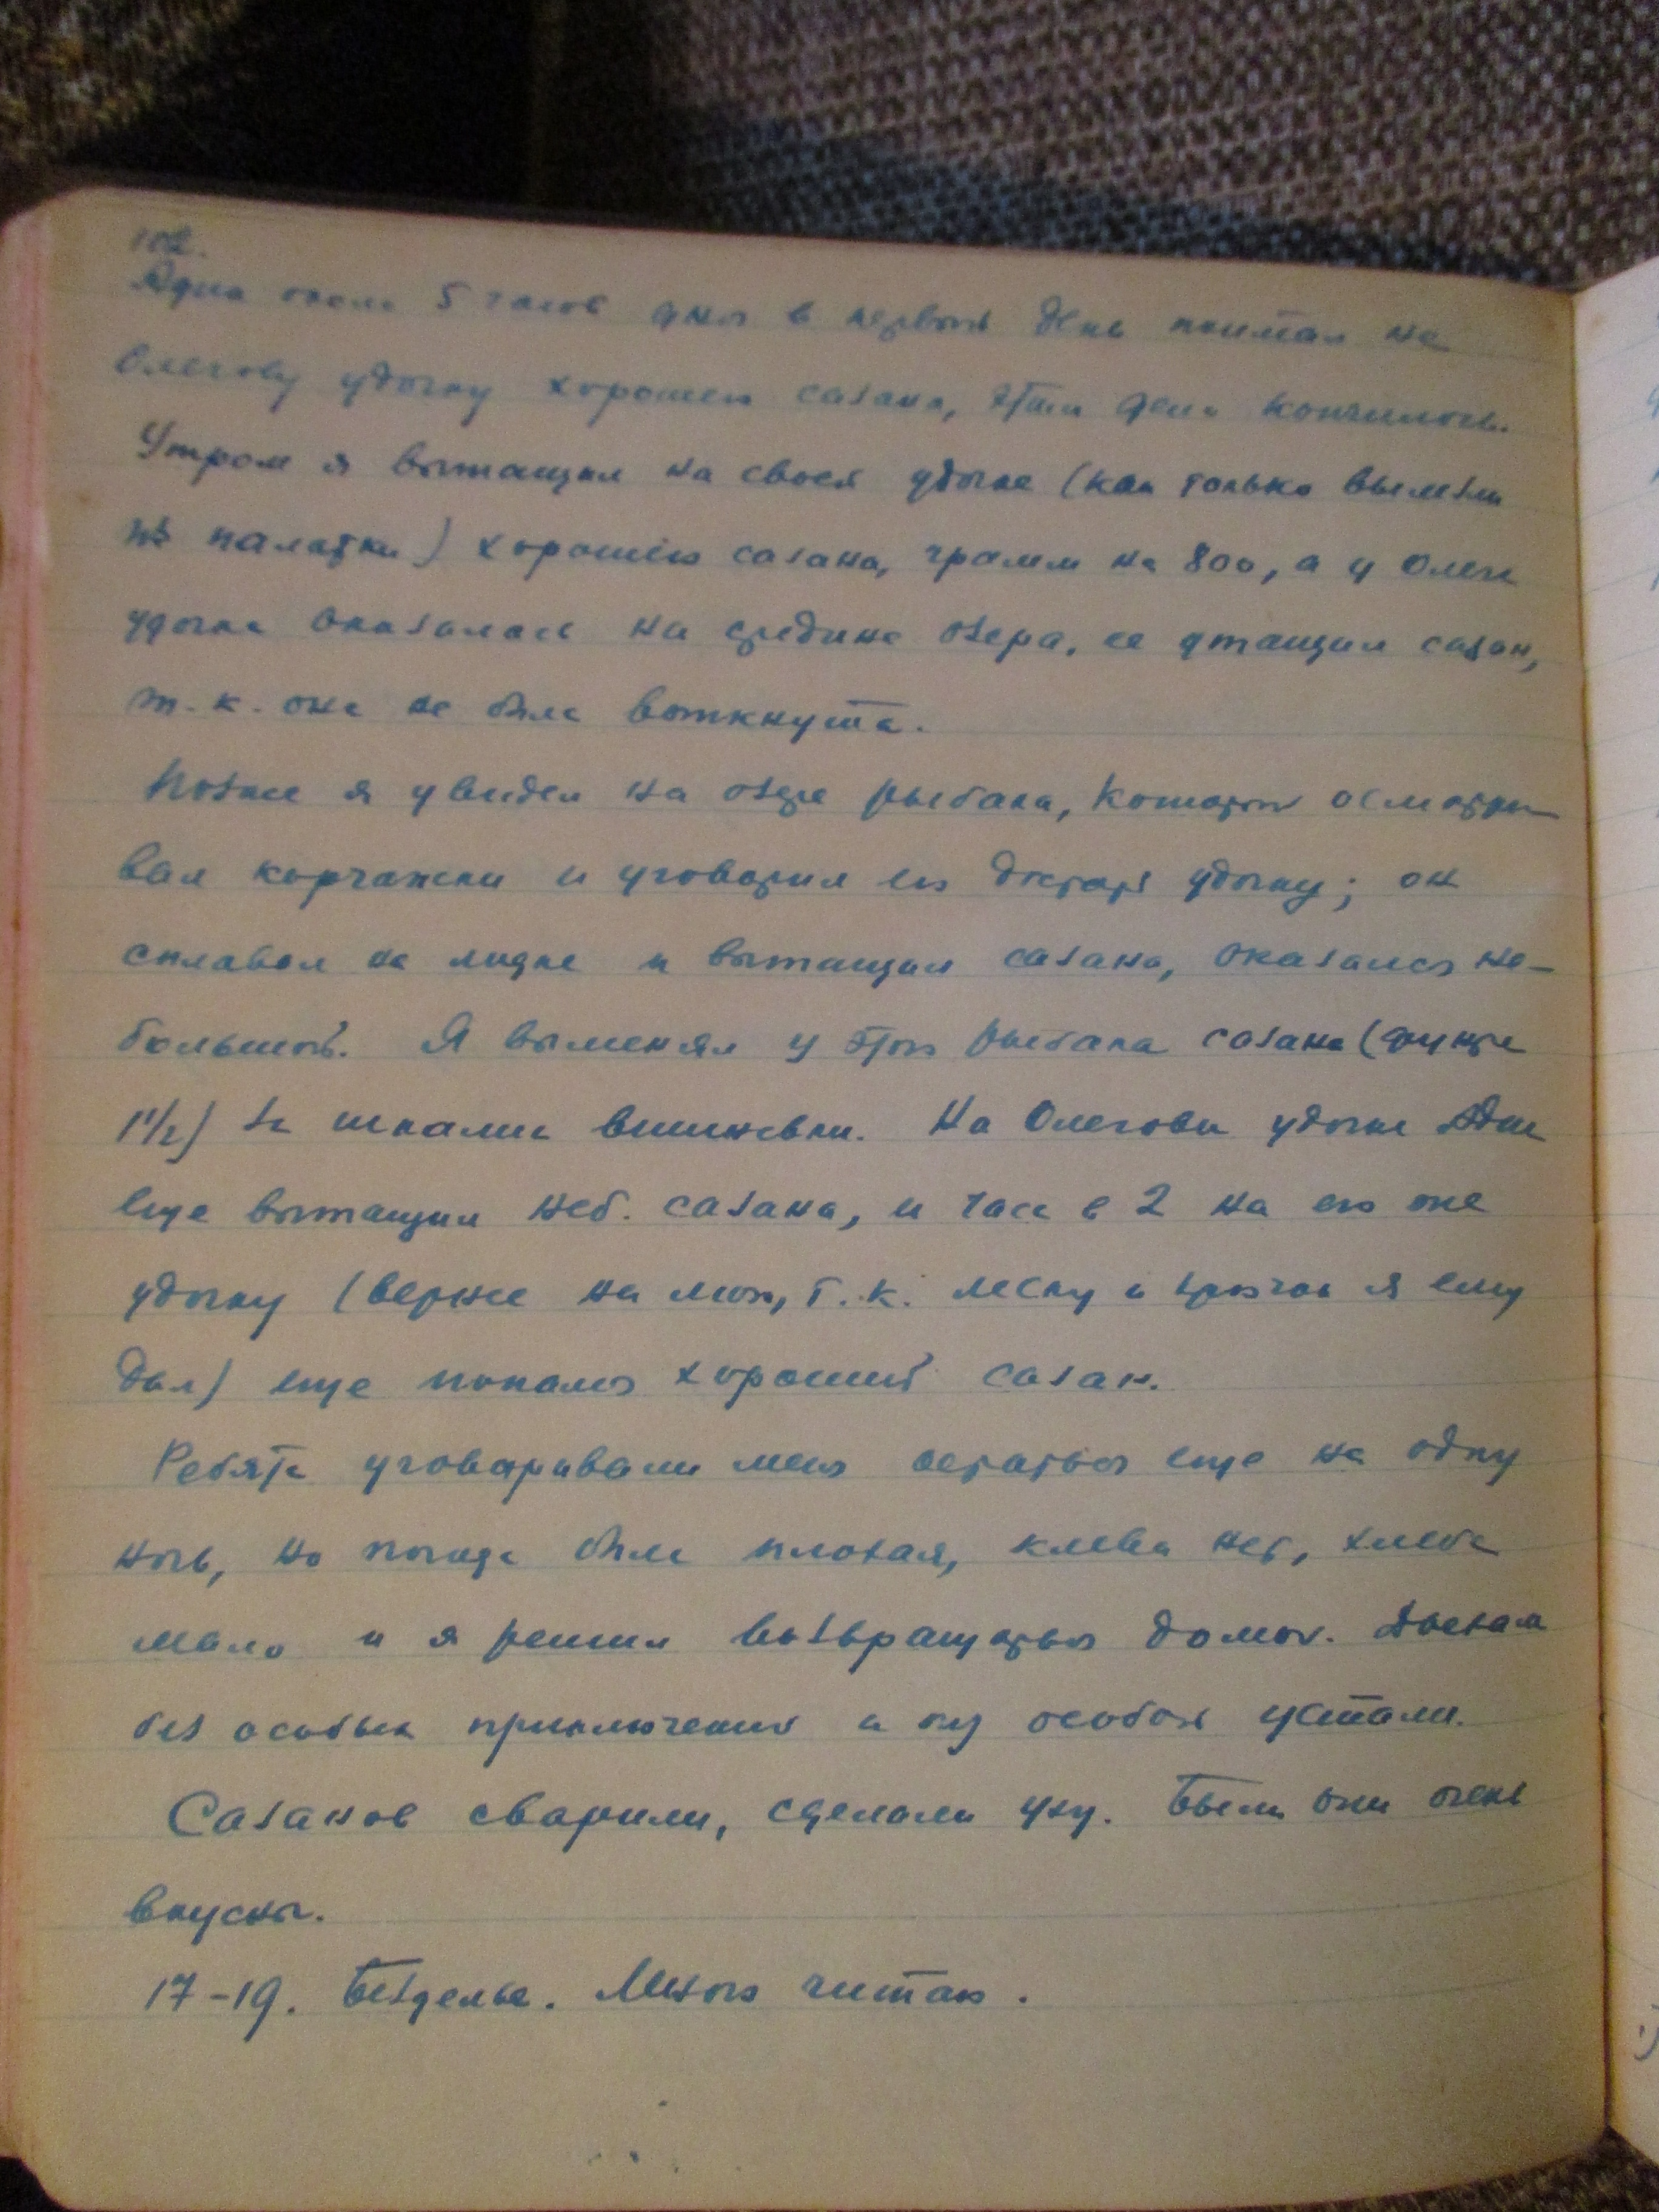 102.
Адик около 5 часов дня в первый день поймал на
Олегову удочку хорошего сазана, этим дело кончилось.
Утром я вытащил на своей удочке (как только вылезли
из палатки) хорошего сазана, грамм на 800, а у Олега
удочка оказалась на средине озера, ее утащил сазан,
т.к. она не была воткнута.
Позже я увидел на озере рыбака, который осматри-
вал корчажки и уговорил его достать удочку; он
сплавал на лодке и вытащил сазана, оказался не-
большой. Я выменял у этого рыбака сазана (фунта
1 1/2) за шкалик вишневки. На Олегову удочку Адик
еще вытащил неб. сазана, и часа в 2 на его же
удочку (вернее на мою, т.к. леску и крючок я ему
дал) еще попался хороший сазан.
Ребята уговаривали меня остаться еще на одну
ночь, но погода была плохая, клева нет, хлеба
мало и я решил возвращаться домой. Доехали
без особых приключений и без особой устали.
Сазанов сварили, сделали уху. Были они очень
вкусны.
17-19. Безделье. Много читаю.